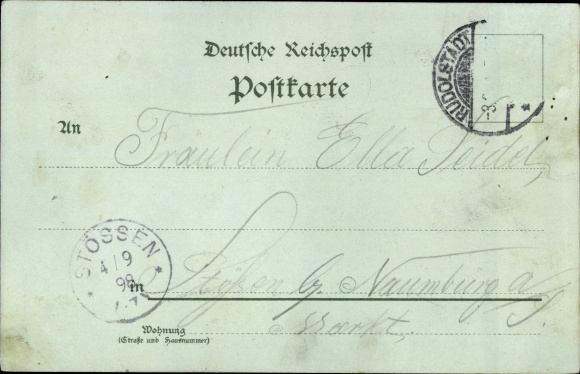 Deutsche Reichspost
Postkarte
RUDOLSTADT
An
Fräulein Ella Seidel,
STÖSSEN
4/9
98
in Stößen b/ Naumburg a/S
Markt.
Wohnung
(Straße und Hausnummer)